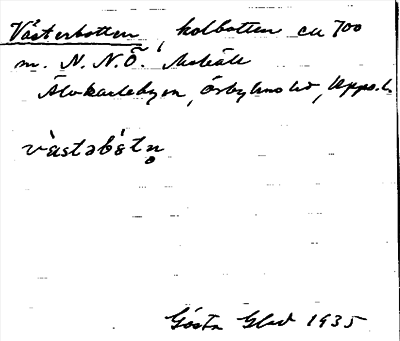 Västerbotten, kolbotten ca 700
m. N.N.Ö. Marsäll
Älvkarleby sn, Örbyhus hd, Upps. l.
vàstəbót̀n̥
Gösta Glad 1935